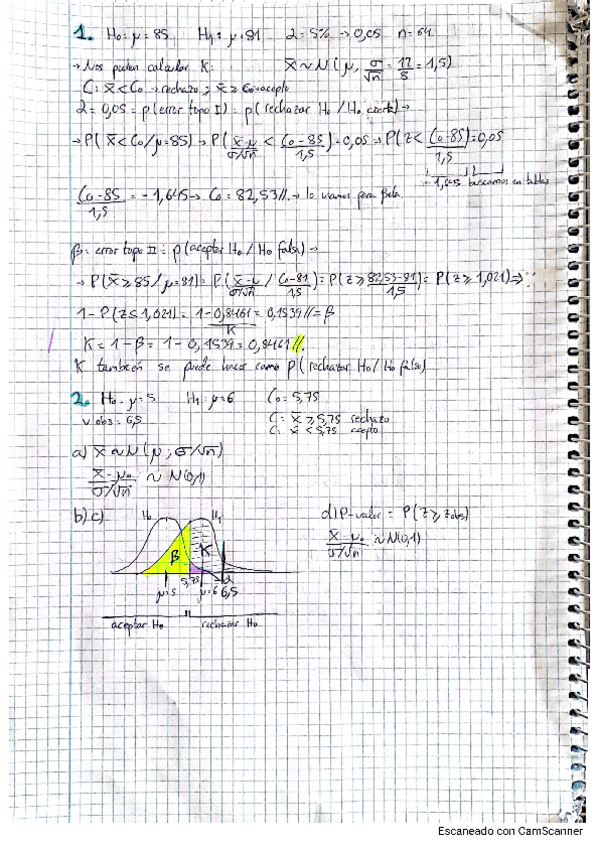 1. H₀: μ = 85 H₁: μ = 81 α = 5% → 0,05 n = 64
→ Nos piden calcular K: x̄ ~ N(μ, σ/√n = 12/8 = 1,5)
C: x̄ < C₀ → rechazo; x̄ ≥ C₀ → acepto
α = 0,05 = p(error tipo I) = p(rechazar H₀ / H₀ cierta) →
→ P(x̄ < C₀ / μ = 85) → P((x̄-μ)/(σ/√n) < (C₀-85)/1,5) = 0,05 → P(Z < (C₀-85)/1,5) = 0,05
-1,645 buscamos en tablas
(C₀-85)/1,5 = -1,645 → C₀ = 82,53//. → lo usamos para Beta.
β = error tipo II = p(aceptar H₀ / H₀ falsa) →
→ P(x̄ ≥ 85 / μ = 81) = P((x̄-μ)/(σ/√n) / (C₀-81)/1,5) = P(Z ≥ (82,53-81)/1,5) = P(Z ≥ 1,021) ⇒
1 - P(Z ≤ 1,021) = 1 - 0,8461 = 0,1539 // = β
K
K = 1 - β = 1 - 0,1539 = 0,8461 //.
K también se puede hacer como p(rechazar H₀ / H₀ falsa)
2. H₀: μ = 5 H₁: μ = 6 C₀ = 5,75
v obs = 6,5 C: x̄ ≥ 5,75 rechazo
C: x̄ < 5,75 acepto
a) x̄ ~ N(μ; σ/√n)
(x̄ - μ₀)/(σ/√n) ~ N(0,1)
b) c) H₀ H₁ d) P-valor = P(Z ≥ zobs)
β K (x̄ - μ₀)/(σ/√n) ~ N(0,1)
μ=5 5,75 μ=6 6,5 α
aceptar H₀ rechazar H₀
Escaneado con CamScanner